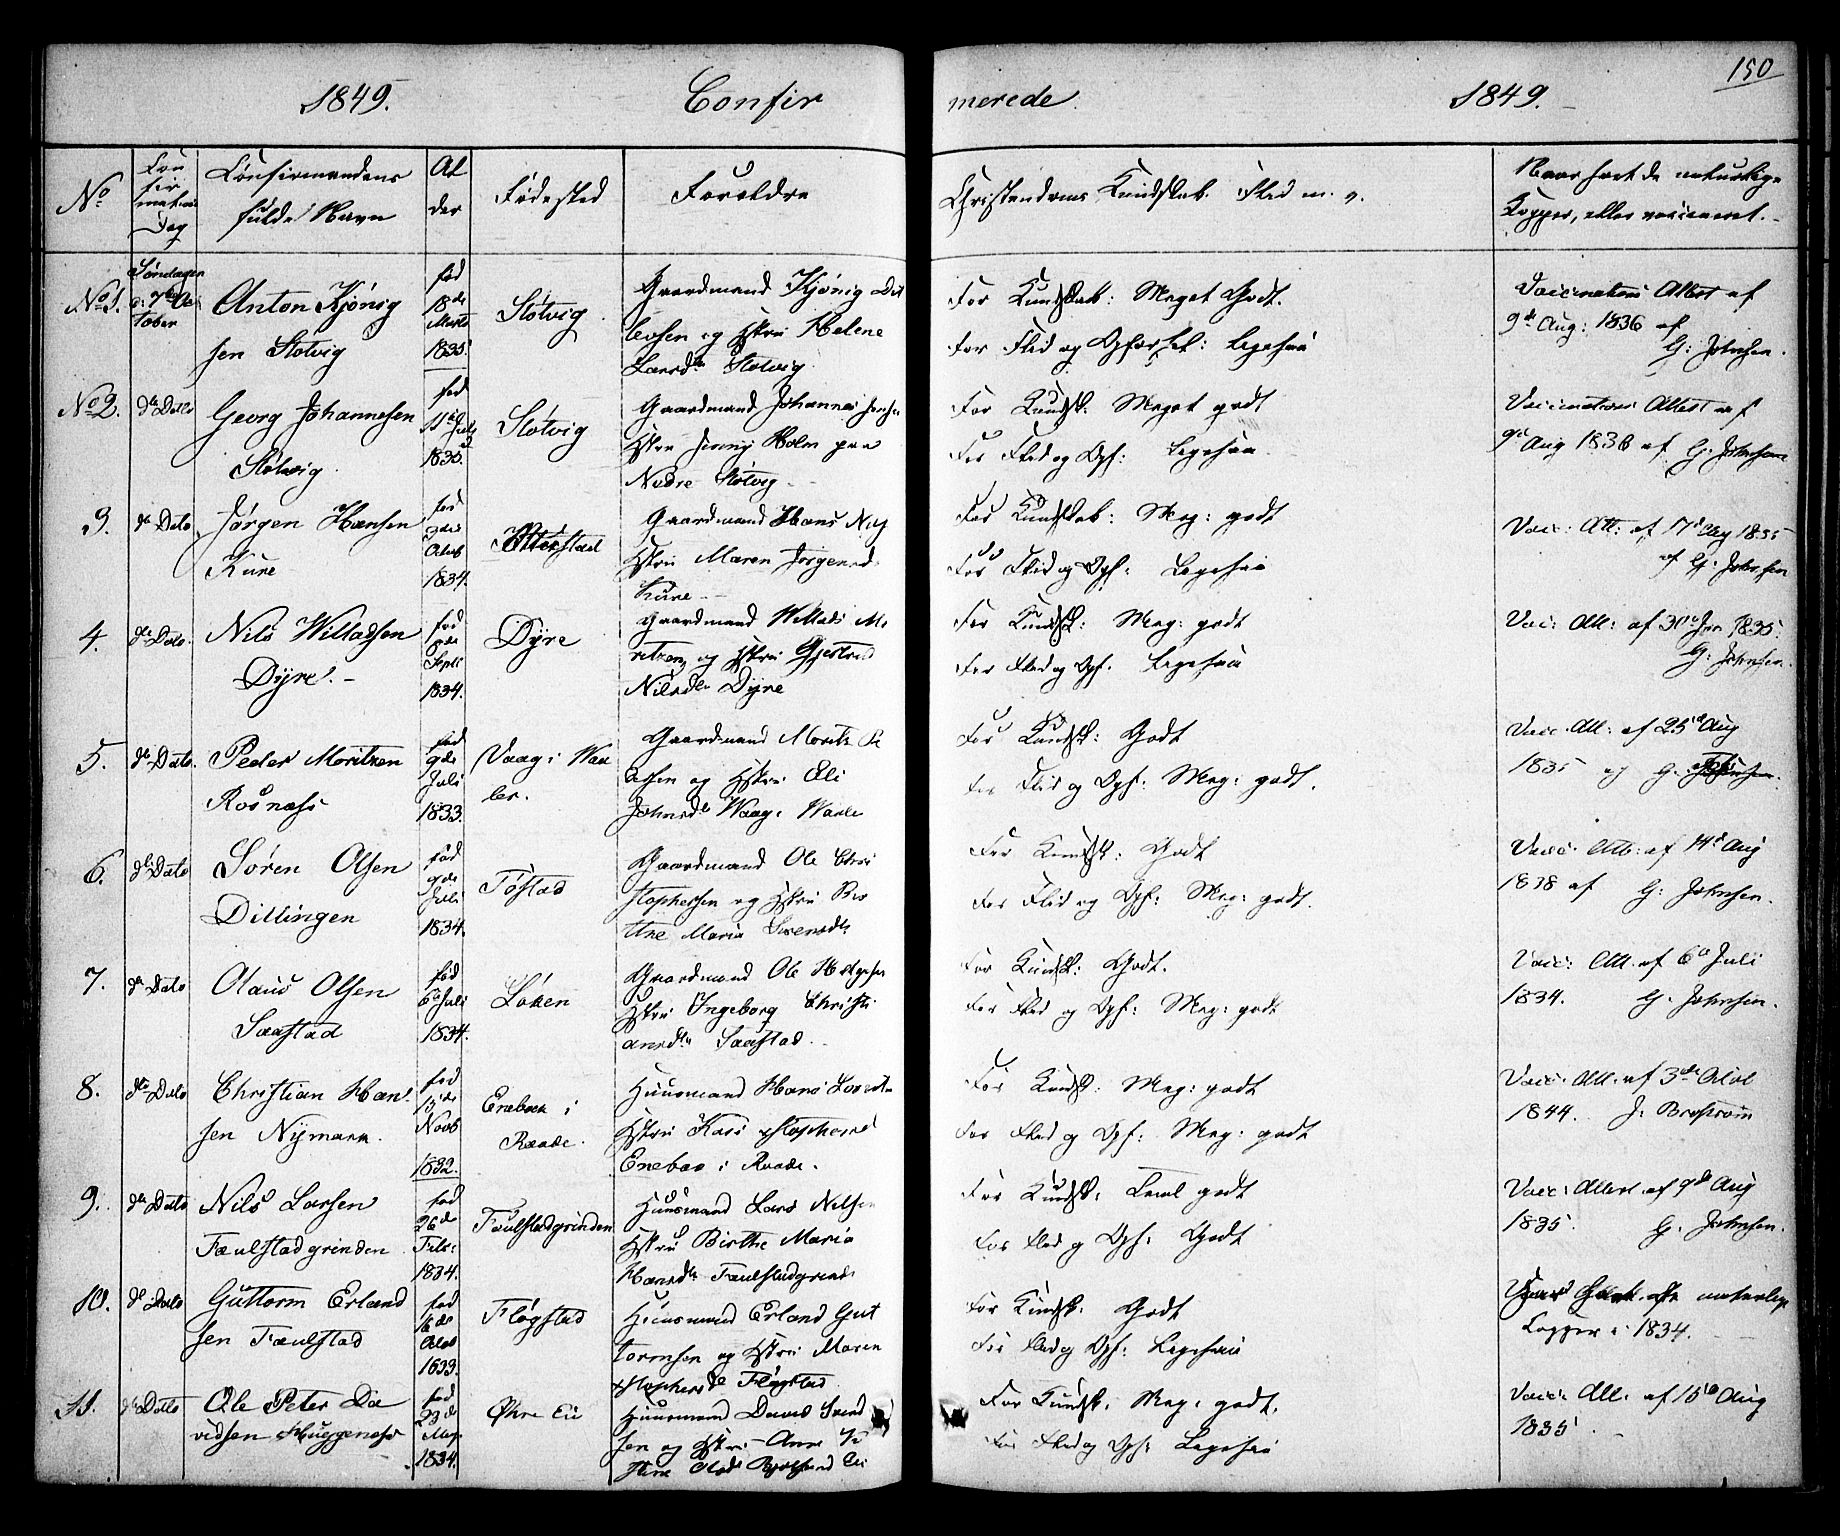 150
1849. Confir merede. 1849.
No
Con
fir
mations
Dag
Confirmandens
fulde Navn
Al
der
Fødested
Forældre
Christendoms Kundskab. Flid m. v.
Naar havt de naturlige
Kopper, eller vaccineret.
No 1.
Søndagen
d: 7de Oc
tober
Anton Kjönig
sen Slotvig
fød
18de
Marts
1835.
Slotvig
Gaardmand Kjönig Dit
levsen og Hstru Helene
Larsd. Slotvig.
For Kundskab: Meget Godt.
For Flid og Opførsel: Ligesaa
Vaccinations Attest af
9de Aug: 1836 af
G: Johnsen.
No 2.
do Dato
Georg Johannesen
Slotvig.
fød
11te Juli
1835.
Slotvig
Gaardmand Johannes Jensen
Hstru Jenny Holm paa
Nedre Slotvig
For Kundsk: Meget godt
For Flid og Opf: Ligesaa.
Vaccinations Attest af
9de Aug 1836 af G: Johnsen
3.
do Dato
Jørgen Hansen
Kure
fød
Octob
1834.
Gaardmand Hans
Hstru Maren Jörgensd
Kure
For Kundskab: Meg: godt
For Flid og Opf: Ligesaa
Vacc: Att: af 17d Aug 1835
af G: Johnsen
4.
do Dato.
Nils Willadsen
Dyre.
fød
Septb
1834.
Dyre
Gaardmand Willads Mo
ritzen og Hstru Gjertrud
Nilsdtr Dyre
For Kundsk: Meg: godt
For Flid og Opf. Ligesaa
Vacc: Att: af 30d Jun 1835.
G: Johnsen.
5.
do Dato.
Peder Moritzen
Rosnæss
fød
9de
Juli
1833.
Vaag i Waa
ler.
Gaardmand Moritz Pe
dersen og Hstru Eli
Johnsd. Waag i Waale
For Kundsk: Godt
For Flid og Opf: Meg: godt.
Vacc. Att: af 25d Aug
1835 af G. Johnsen.
6.
do Dato
Sören Olsen
Dillingen
fød
9de
Juli
1834.
Tøstad
Gaardmand Ole Chri
stophersen og Hstru
Maria Svensdtr
For Kundsk: Godt
For Flid og Opf: Meg: godt.
Vacc: Att: af 14d Aug
1838 af G: Johnsen.
7.
do Dato
Olaus Olsen
Saastad
fød
6te Juli
1834.
Löken
Gaardmand Ole Helgesen
Hstru Ingeborg Christi
ansdtr Saastad.
For Kundsk: Godt.
For Flid og Opf: Meg: godt
Vacc: Att. af 6d Juli
1834. G: Johnsen.
8.
do Dato
Christian Han
sen Nymark.
fød
15de
Novb
1832.
Enebak i
Raade.
Huusmand Hans
Hstru Kari Stophersd
Enebak i Raade.
For Kundsk: Meg: godt
For Flid og Opf: Meg: godt
Vacc: Att. af 3de Octob
1844. J: Broström
9.
do Dato
Nils Larsen
Faulstadgrinden
fød
26de
Feb:
1834.
Faulstadgrinden
Huusmand Lars Nilsen
Hstru Birthe Maria
Hansdtr Faulstadgrind
For Kundsk: Temel godt
For Flid og Opf: Godt
Vacc: Attest af 9d Aug
1835. G: Johnsen.
10.
do Dato
Guttorm Erland
sen Faulstad
fød
16de
Octob
1833.
Flögstad
Huusmand Erland Gut
tormsen og Hstru Maren
Stophersd Flögstad
For Kundsk: Godt
For Flid og Opf: Ligesaa
naturlige
Kopper i 1834.
11.
do Dato
Ole Peter Da
vidsen Huggenæss
fød
23de
May
1834.
Øhre Eie
Huusmand David Svend
sen og Hstru Anne
For Kundsk: Meg: godt.
For Flid og Opf: Ligesaa
Vacc: Att: af 15d Aug
1835.